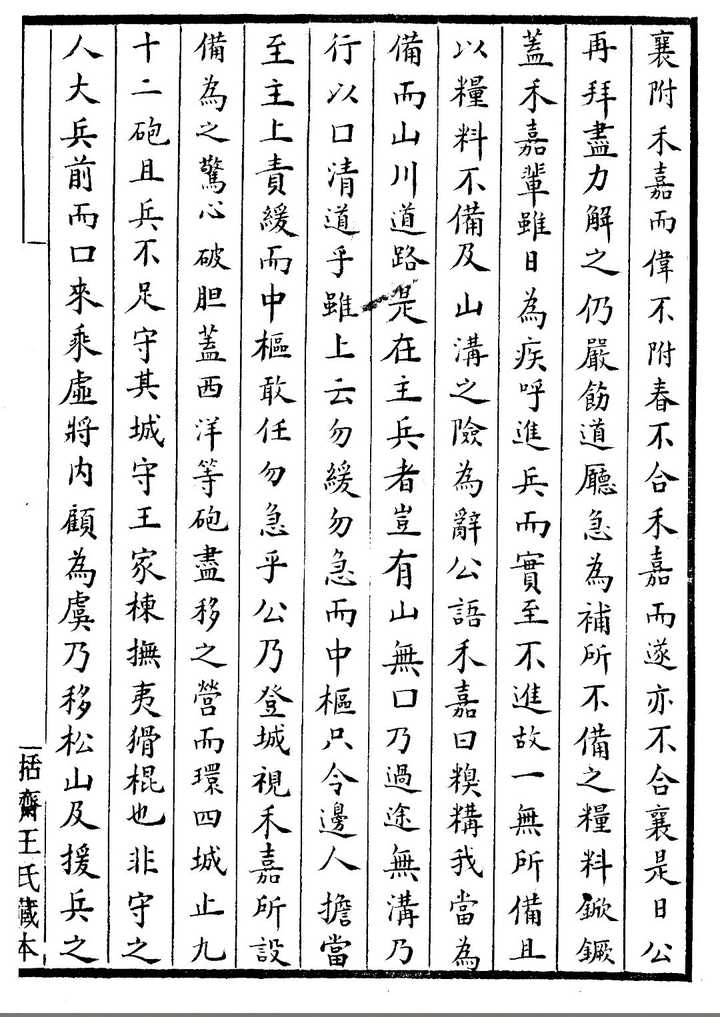 襄附禾嘉而偉不附春不合禾嘉而遂亦不合襄是日公
再拜盡力解之仍嚴飭道廳急為補所不備之糧料鍁鐝
蓋禾嘉輩雖日為疾呼進兵而實至不進故一無所備且
以糧料不備及山溝之險為辭公語禾嘉曰糗糒我當為
備而山川道路是在主兵者豈有山無口乃過途無溝乃
行以口清道乎雖上云勿緩勿急而中樞只令邊人擔當
至主上責緩而中樞敢任勿急乎公乃登城視禾嘉所設
備為之驚心破胆蓋西洋等砲盡移之營而環四城止九
十二砲且兵不足守其城守王家棟撫夷猾棍也非守之
人大兵前而口來乘虛將內顧為虞乃移松山及援兵之
括齋王氏藏本